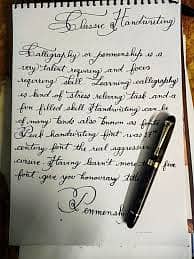 Classic Handwriting
Calligraphy or penmenship is a
very talent requring and focus
requiring skill. Learning calligraphy
is kind of "stress relieving" task and a
fun filled skill. Handwriting can be
of many kinds also known as fonts
handwriting font was
century font the real
cursive. Having learn't more
font give you honourary title
Penmenship